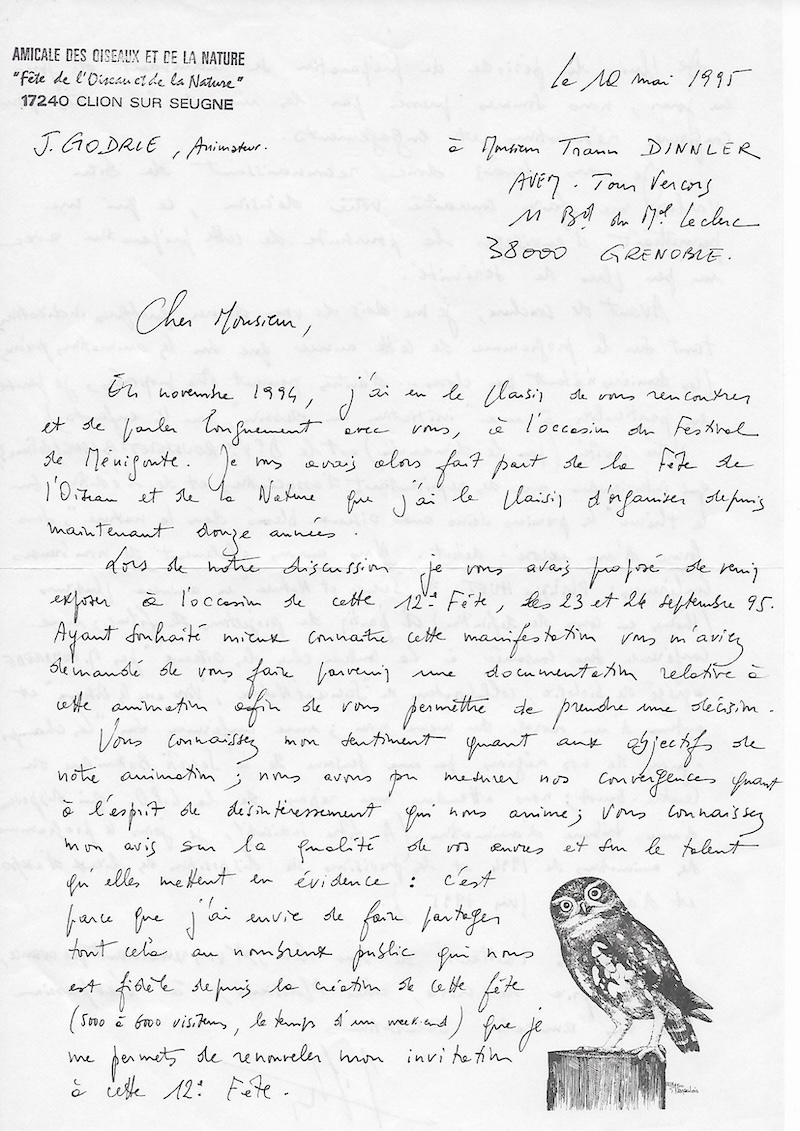 AMICALE DES OISEAUX ET DE LA NATURE
"Fête de l'Oiseau et de la Nature"
17240 CLION SUR SEUGNE
J. GODRIE, Animateur.
le 10 mai 1995
à Monsieur Trann DINNLER
AVEM. Tour Vercors
11 Bd du Mal Leclerc
38000 GRENOBLE.
Cher Monsieur,
En novembre 1994, j'ai eu le plaisir de vous rencontrer
et de parler longuement avec vous, à l'occasion du Festival
de Ménigoute. Je vous avais alors fait part de la Fête de
l'Oiseau et de la Nature que j'ai le plaisir d'organiser depuis
maintenant douze années.
Lors de notre discussion je vous avais proposé de venir
exposer à l'occasion de cette 12e Fête, les 23 et 24 septembre 95.
Ayant souhaité mieux connaître cette manifestation vous m'aviez
demandé de vous faire parvenir une documentation relative à
cette animation afin de vous permettre de prendre une décision.
Vous connaissez mon sentiment quant aux objectifs de
notre animation ; nous avons pu mesurer nos convergences quant
à l'esprit de désintéressement qui nous anime ; vous connaissez
mon avis sur la qualité de vos œuvres et sur le talent
qu'elles mettent en évidence : c'est
parce que j'ai envie de faire partager
tout cela au nombreux public qui nous
est fidèle depuis la création de cette fête
(5000 à 6000 visiteurs, le temps d'un week-end) que je
me permets de renouveler mon invitation
à cette 12e Fête.